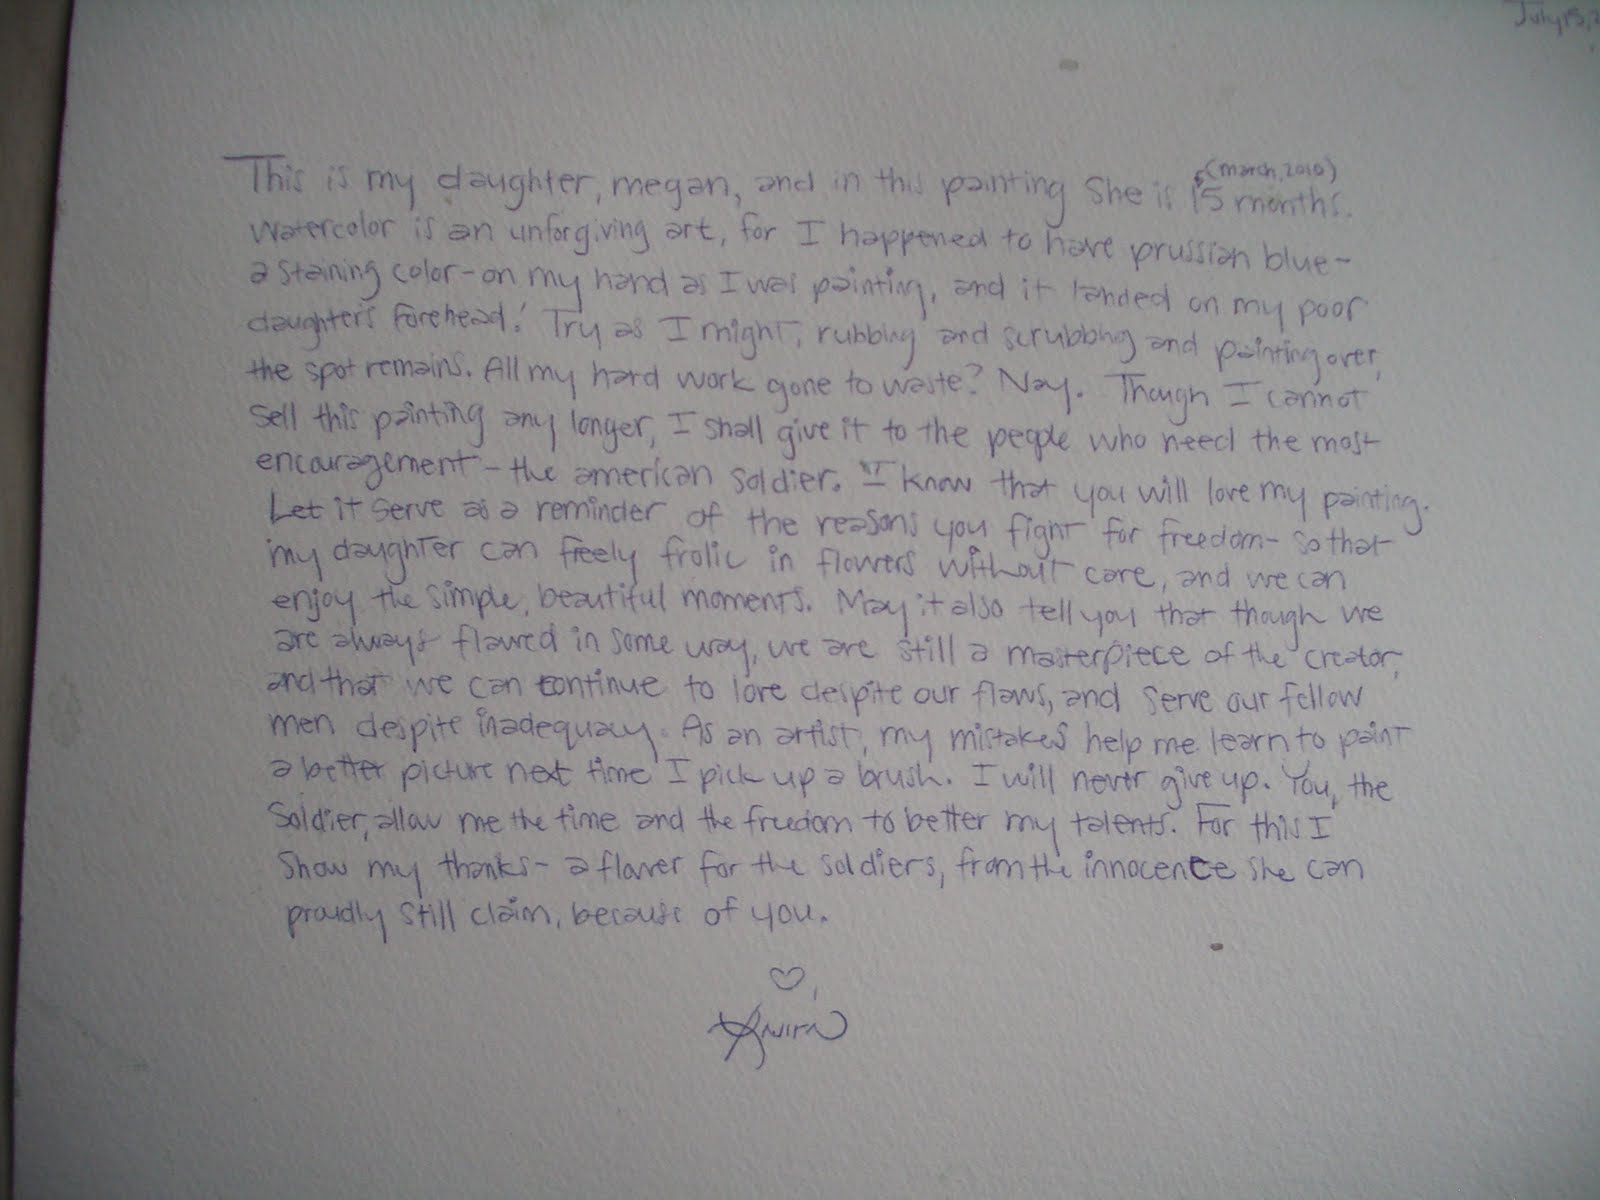 July 15, 2
(march, 2010)
This is my daughter, megan, and in this painting she is 15 months.
Watercolor is an unforgiving art, for I happened to have prussian blue-
a staining color-on my hand as I was painting, and it landed on my poor
daughter's forehead! Try as I might, rubbing and scrubbing and painting over,
the spot remains. All my hard work gone to waste? Nay. Though I cannot
sell this painting any longer, I shall give it to the people who need the most
encouragement - the american soldier. I know that you will love my painting.
Let it serve as a reminder of the reasons you fight for freedom- so that
my daughter can freely frolic in flowers without care, and we can
enjoy the simple, beautiful moments. May it also tell you that though we
are always flawed in some way, we are still a masterpiece of the creator,
and that we can continue to love despite our flaws, and serve our fellow
men despite inadequacy. As an artist, my mistakes help me learn to paint
a better picture next time I pick up a brush. I will never give up. You, the
soldier, allow me the time and the freedom to better my talents. For this I
show my thanks- a flower for the soldiers, from the innocence she can
proudly still claim, because of you.
♡,